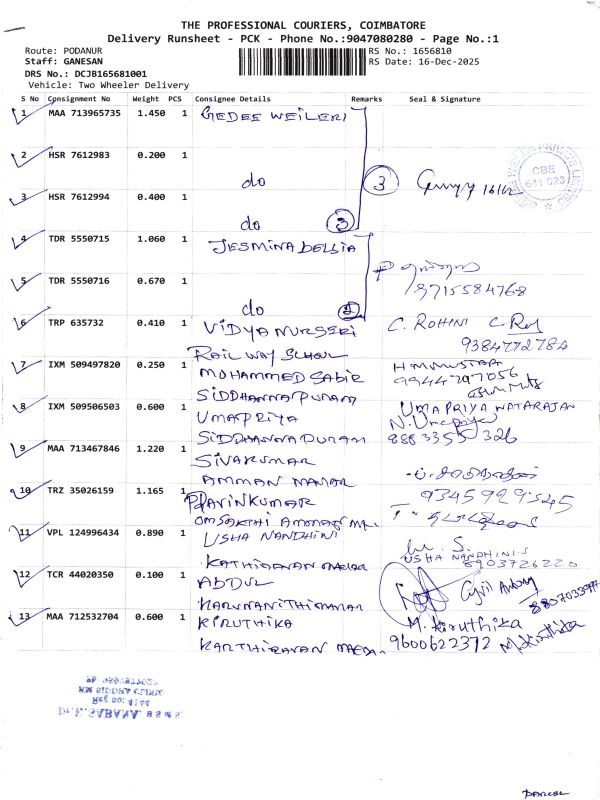 THE PROFESSIONAL COURIERS, COIMBATORE
Delivery Runsheet - PCK - Phone No.:9047080280 - Page No.:1
Route: PODANUR
RS No.: 1656810
Staff: GANESAN
RS Date: 16-Dec-2025
DRS No.: DCJB165681001
Vehicle: Two Wheeler Delivery
S No Consignment No Weight PCS Consignee Details Remarks Seal & Signature
1 MAA 713965735 1.450 1 GEDEE WEILERI
2 HSR 7612983 0.200 1
do 3 16/12
CBE
3 HSR 7612994 0.400 1
do 3
4 TDR 5550715 1.060 1 JESMINA DELLIA
5 TDR 5550716 0.670 1 9715584768
do 2
6 TRP 635732 0.410 1 VIDYA NURSERI C. ROHINI
RAILWAY SCHOOL 9384772784
7 IXM 509497820 0.250 1 MOHAMMED SABIR
9944797056
SIDDHANNAPURAM
8 IXM 509506503 0.600 1 UMAPRIYA UMA PRIYA NATARAJAN
SIDDHANNAPURAM 8883355326
9 MAA 713467846 1.220 1 SIVAKUMAR
AMMAN NAGAR
10 TRZ 35026159 1.165 1 PRAVINKUMAR 9345929345
OMSAKTHI
11 VPL 124996434 0.890 1 USHA NANDHINI
USHA NANDHINI.S
KATHIRAVAN 8903726220
12 TCR 44020350 0.100 1 ABDUL
KARUNANITHINAGAR
13 MAA 712532704 0.600 1 KIRUTHIKA M. Kiruthika
KARTHIRAVAN 9600622372 M.Kiruthika
Dr. K. SABANA B.S.M.S.
Reg no: 4144
KM SIDDHA CLINIC
PARCEL